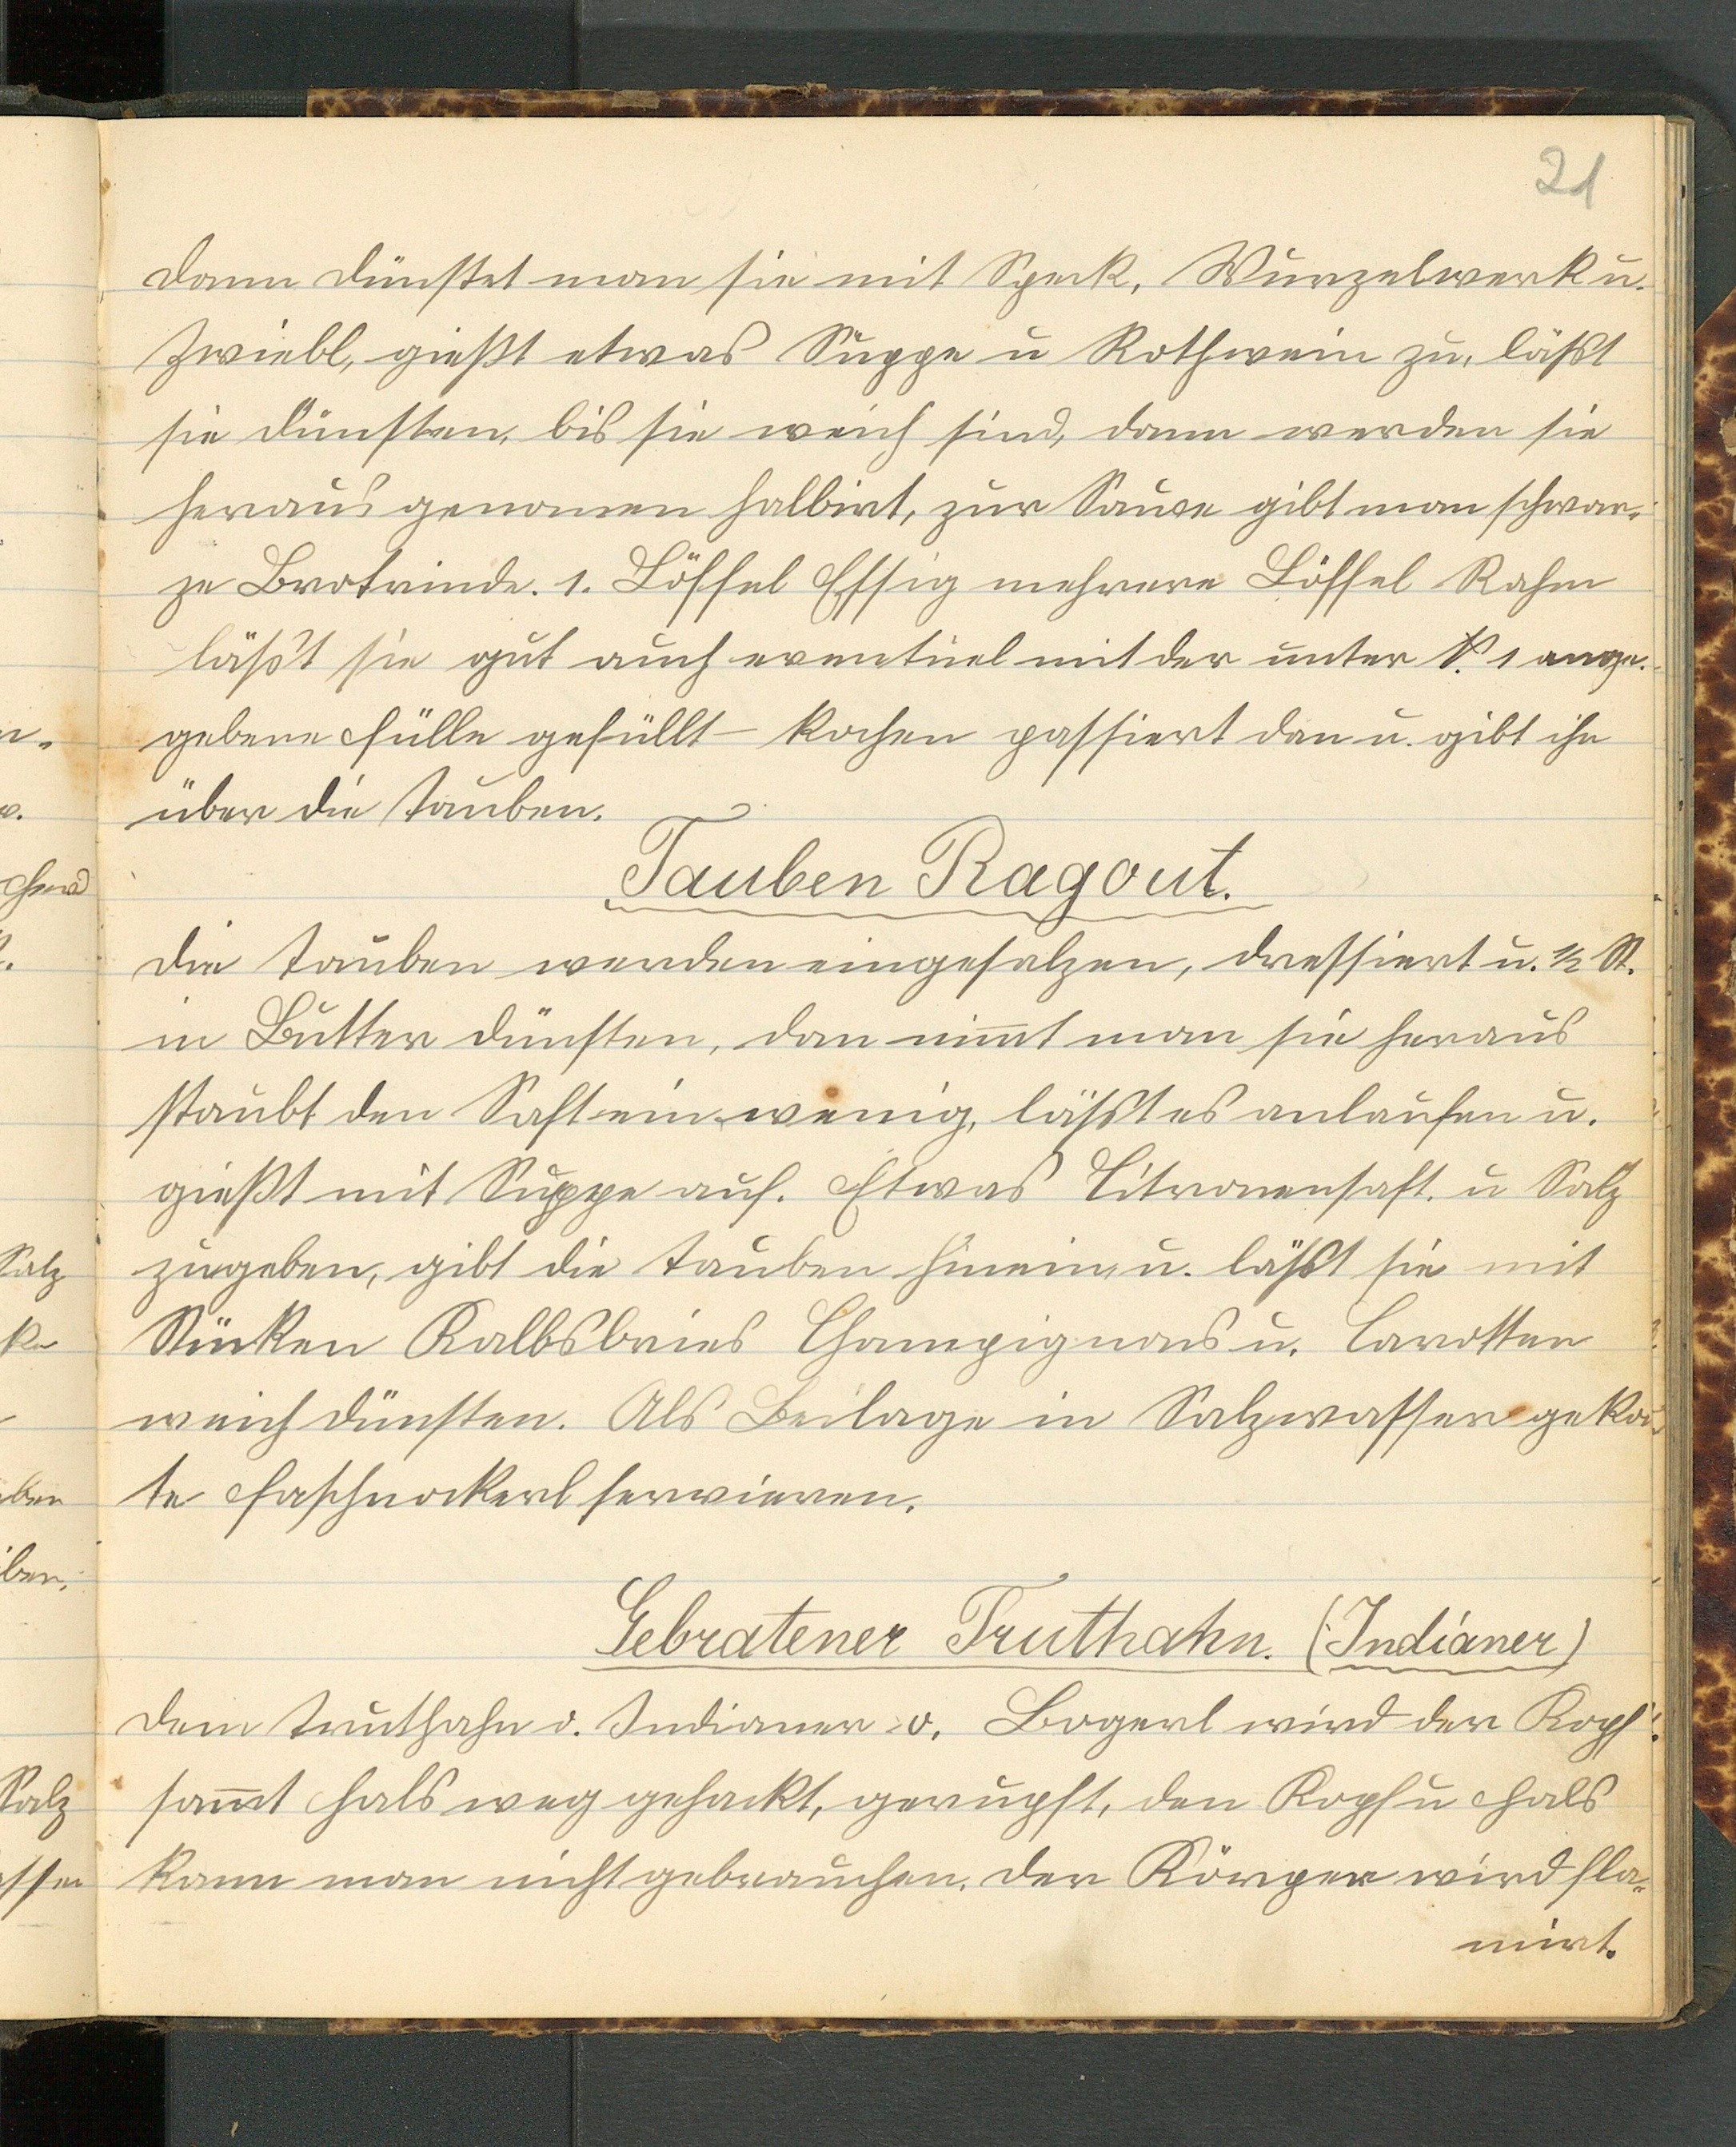 21
dann dünstet man sie mit Speck, Wurzelwerk u.
Zwiebl, gießt etwas Suppe u Rothwein zu, läßt
sie dünsten, bis sie weich sind, dann werden sie
heraus genomen halbirt, zur Sauce gibt man schwar-
ze Brotrinde. 1. Löffel Essig mehrere Löffel Rahm
läßt sie gut auch eventuel mit der unter 1 ange-
gebene Fülle gefüllt - kochen passiert dan u. gibt ihn
über die Tauben.
Tauben Ragout.
Die Tauben werden eingesalzen, dressiert u. ½ St.
in Butter dünsten, dan nim̅t man sie heraus
staubt den Saft ein wenig, läßt es anlaufen u.
gießt mit Suppe auf. Etwas Citronensaft. u Salz
zugeben, gibt die Tauben hinein, u. läßt sie mit
Stücken Kalbsbries Champignons u. Carotten
weich dünsten. Als Beilage in Salzwasser geko-
te Faschnockerl servieren.
Gebratener Truthahn. (Indianer)
Dem Truthahn o. Indianer o. Bogerl wird der Kopf
sam̅t Hals weg gehackt, gerupft, den Kopf u Hals
kann man nicht gebrauchen. Der Körper wird fla-
mirt.
Salz
ben
ben.
Salz